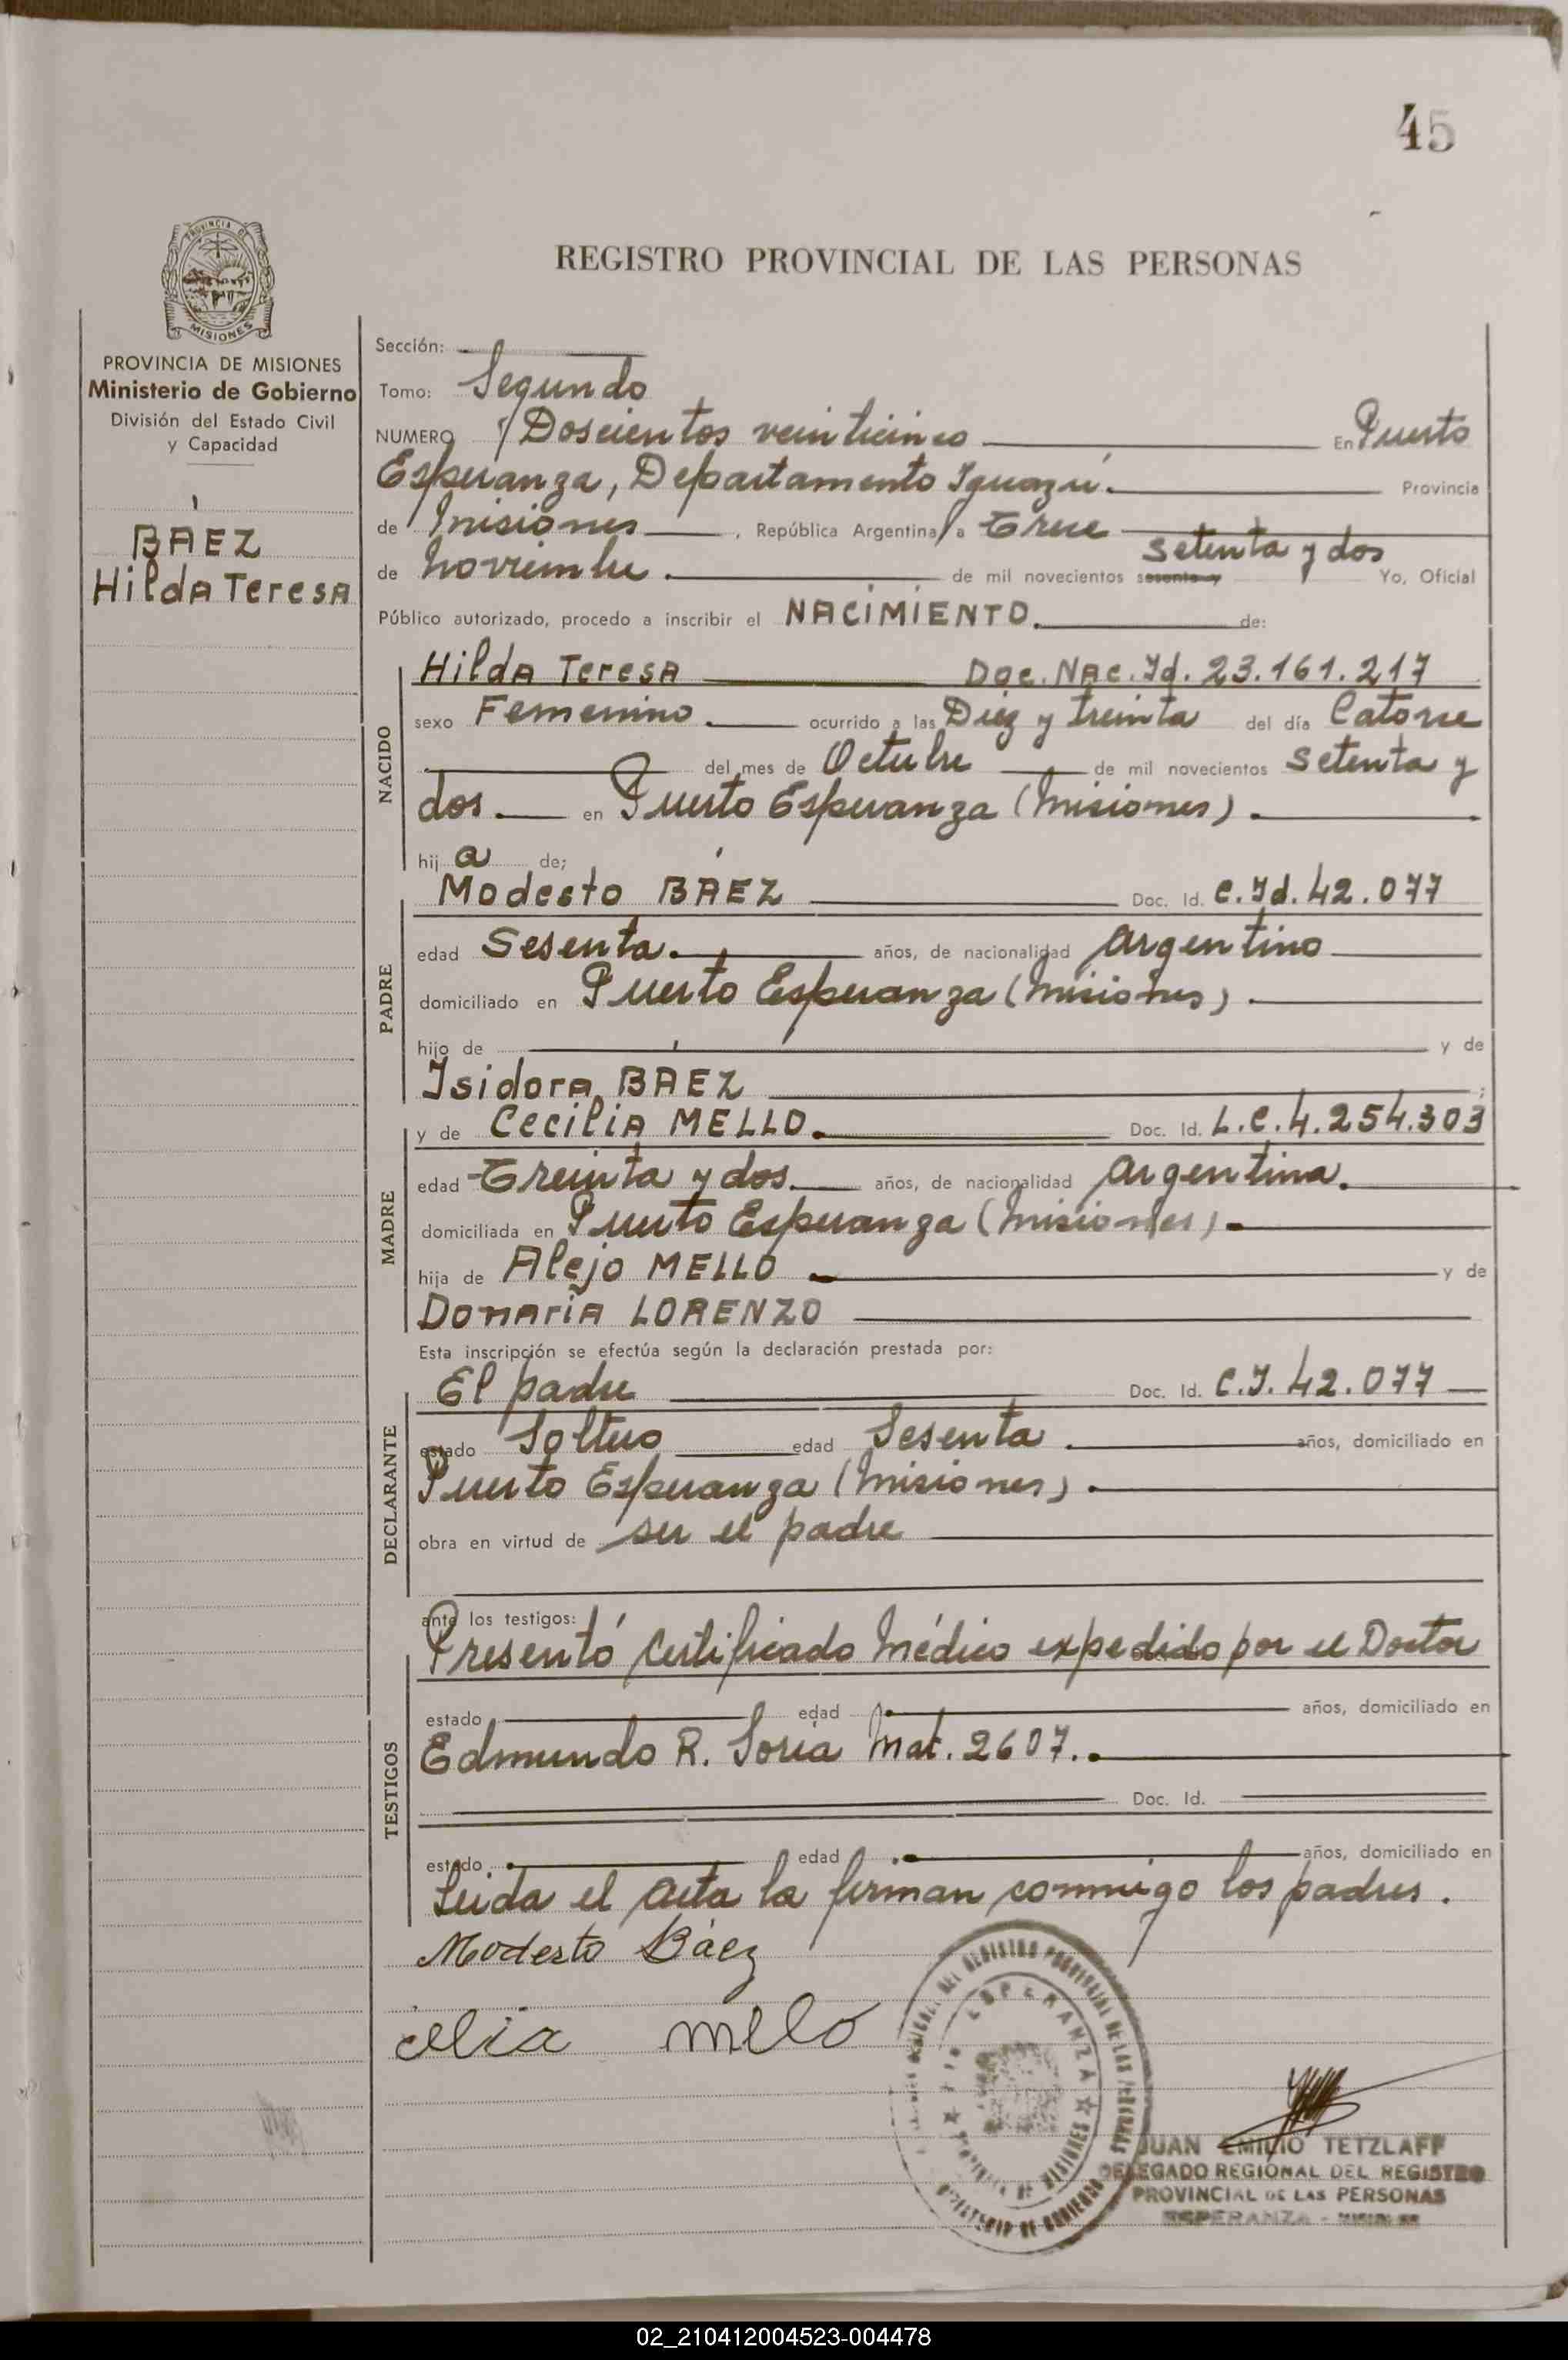 45
REGISTRO PROVINCIAL DE LAS PERSONAS
PROVINCIA DE
MISIONES
PROVINCIA DE MISIONES
Ministerio de Gobierno
División del Estado Civil
y Capacidad
BÁEZ
Hilda Teresa
Sección:
Tomo: Segundo
NUMERO Doscientos veinticinco En Puerto
Esperanza, Departamento Iguazú. Provincia
de Misiones, República Argentina a Trece
de Noviembre. de mil novecientos sesenta y setenta y dos Yo, Oficial
Público autorizado, procedo a inscribir el NACIMIENTO. de:
NACIDO
Hilda Teresa Doc. Nac. Id. 23.161.217
sexo Femenino. ocurrido a las Diez y treinta del día Catorce
del mes de Octubre de mil novecientos setenta y
dos. en Puerto Esperanza (Misiones).
hij a de;
PADRE
Modesto BÁEZ Doc. Id. C.Id. 42.077
edad Sesenta. años, de nacionalidad Argentino
domiciliado en Puerto Esperanza (Misiones).
hijo de y de
Isidora BÁEZ ;
MADRE
y de Cecilia MELLO. Doc. Id. L.C.4.254.303
edad Treinta y dos. años, de nacionalidad Argentina.
domiciliada en Puerto Esperanza (Misiones).
hija de Alejo MELLO y de
Donaria LORENZO
Esta inscripción se efectúa según la declaración prestada por:
DECLARANTE
El padre Doc. Id. C.I. 42.077
estado Soltero edad Sesenta. años, domiciliado en
Puerto Esperanza (Misiones).
obra en virtud de ser el padre
ante los testigos:
TESTIGOS
Presentó Certificado Médico expedido por el Doctor
estado edad años, domiciliado en
Edmundo R. Soria Mat. 2607.
Doc. Id.
estado edad años, domiciliado en
Leida el acta la firman conmigo los padres.
Modesto Báez
celia melo
DEL REGISTRO PROVINCIAL DE LAS PERSONAS
ESPERANZA
PROVINCIA DE MISIONES
MINISTERIO DE GOBIERNO
JUAN EMILIO TETZLAFF
DELEGADO REGIONAL DEL REGISTRO
PROVINCIAL DE LAS PERSONAS
ESPERANZA - MISIONES
02_210412004523-004478